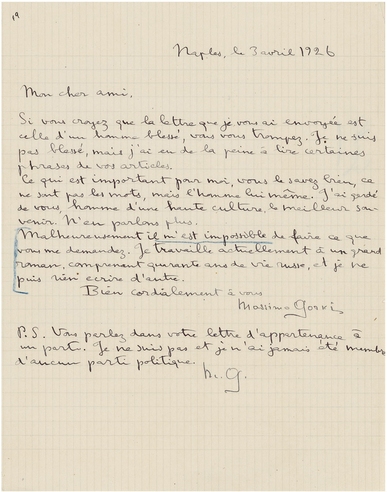 19
Naples, le 3 avril 1926
Mon cher ami,
Si vous croyez que la lettre que je vous ai envoyée est
celle d'un homme blessé, vous vous trompez. Je ne suis
pas blessé, mais j'ai eu de la peine à lire certaines
phrases de vos articles.
Ce qui est important pour moi, vous le savez bien, ca
ne sont pas les mots, mais l'homme lui même. J'ai gardé
de vous, homme d'une haute culture, le meilleur sou-
venir. N'en parlons plus.
Malheureusement il m'est impossible de faire ce que
vous me demandez. Je travaille actuellement à un grand
roman, comprenant quarante ans de vie russe, et je ne
puis rien ecrire d'autre.
Bien cordialement à vous
Massimo Gorki
P.S. Vous parlez dans votre lettre d'appartenance à
un parti. Je ne suis pas et je n'ai jamais été membre
d'aucun parti politique.
M. G.